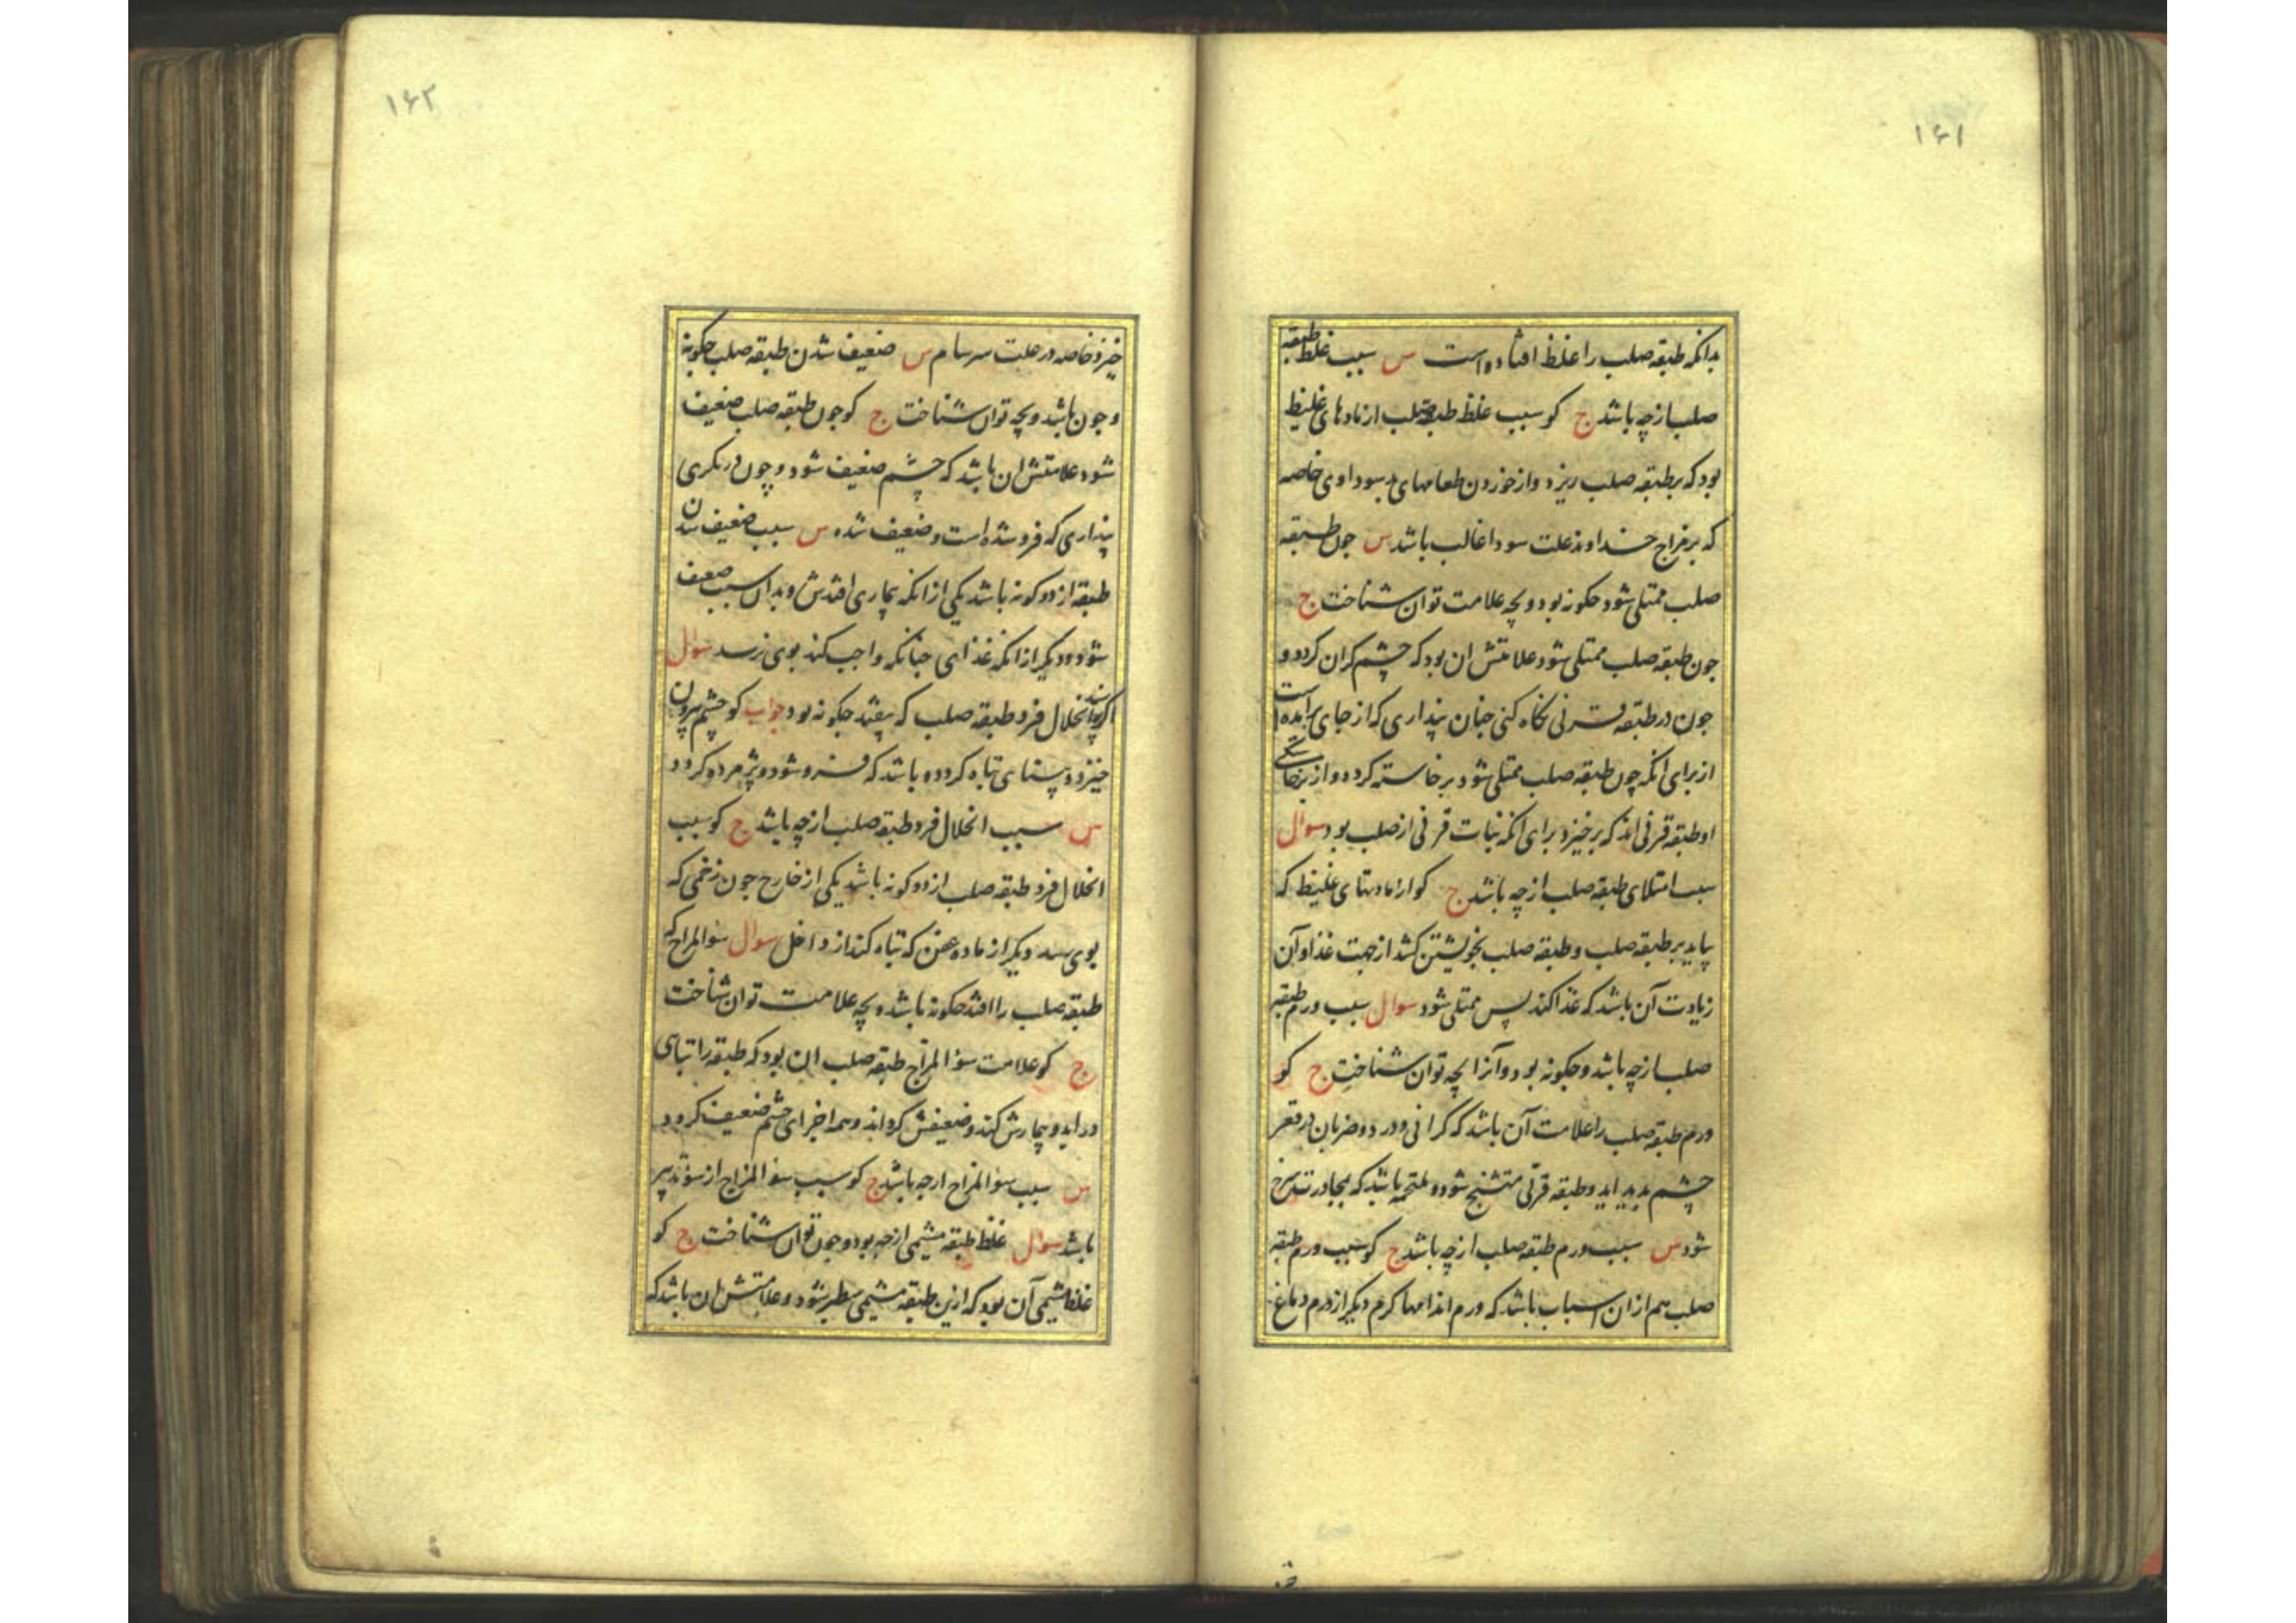 ۱۶۱
بدانکه طبقه صلب را غلظ افتاده است س سبب غلظ طبقه
صلب از چه باشد ج کو سبب غلظ طبقه صلب از مادهای غلیظ
بود که بطبقه صلب ریزد و از خوردن طعامهای سوداوی خاصه
که بر مزاج خداوند علت سودا غالب باشد س جون طبقه
صلب ممتلی شود جکونه بود و بچه علامت توان شناخت ج
جون طبقه صلب ممتلی شود علامتش ان بود که چشم کران کردد و
جون در طبقه قرنی نکاه کنی جنان پنداری که از جای برامده است
از برای انکه چون طبقه صلب ممتلی شود برخاسته کردد و از برخاستگی
او طبقه قرنی اند که برخیزد برای انکه نبات قرنی از صلب بود سوال
سبب امتلای طبقه صلب از چه باشد ج کو از مادتهای غلیظ که
بیاید بر طبقه صلب و طبقه صلب بخویشتن کشد از جهت غذا و آن
زیادت آن باشد که غذا کند پس ممتلی شود سوال سبب ورم طبقه
صلب از چه باشد و جکونه بود و آنرا بچه توان شناخت ج کو
ورم طبقه صلب را علامت آن باشد که کرانی و درد و ضربان در قعر
چشم پدید اید و طبقه قرنی متشنج شود و ملتحمه باشد که بمجاورت سرخ
شود س سبب ورم طبقه صلب از چه باشد ج کو سبب ورم طبقه
صلب هم از ان اسباب باشد که ورم اندامها کرم دیکر از ورم دماغ
۱۶۲
خیزد خاصه در علت سرسام س ضعیف شدن طبقه صلب جکونه
و جون باشد و بچه توان شناخت ج کو جون طبقه صلب ضعیف
شود علامتش ان باشد که چشم ضعیف شود و چون در نکری
پنداری که فرو شده است و ضعیف شده س سبب ضعیف شدن
طبقه از دو کونه باشد یکی از انکه بیماری افتدش و بدان سبب ضعیف
شود و دیکر از انکه غذای جنانکه واجب کند بوی نرسد سوال
انحلال فرد طبقه صلب که بیفتد جکونه بود جواب کو چشم بیرون
خیزد و بینای تباه کردد و باشد که فرو شود و پژمرده کردد
س سبب انحلال فرد طبقه صلب از چه باشد ج کو سبب
انحلال فرد طبقه صلب از دو کونه باشد یکی از خارج جون زخمی که
بوی رسد دیکر از ماده عفن که تباه کند از داخل سوال سؤالمزاج که
طبقه صلب را افتد جکونه باشد و بچه علامت توان شناخت
ج کو علامت سؤالمزاج طبقه صلب ان بود که طبقه را تباهی
در اید و بیمارش کند و ضعیفش کرداند و همه اجزای چشم ضعیف کردد
س سبب سؤالمزاج ازچه باشد ج کو سبب سؤالمزاج از سؤتدبیر
باشد سوال غلظ طبقه مشیمی ازچه بود و جون توان شناخت ج کو
غلظ مشیمی آن بود که ازین طبقه مشیمی سطبر شود و علامتش ان باشد که